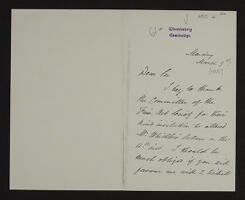 Cambridge.
Monday
March 9th
Dear Sir
I beg to thank
the Committee of the
Fine Art Society for their
kind invitation to attend
Mr Whistler's lecture on the
inst. I should be
much obliged if you will
favour me with 2 tickets